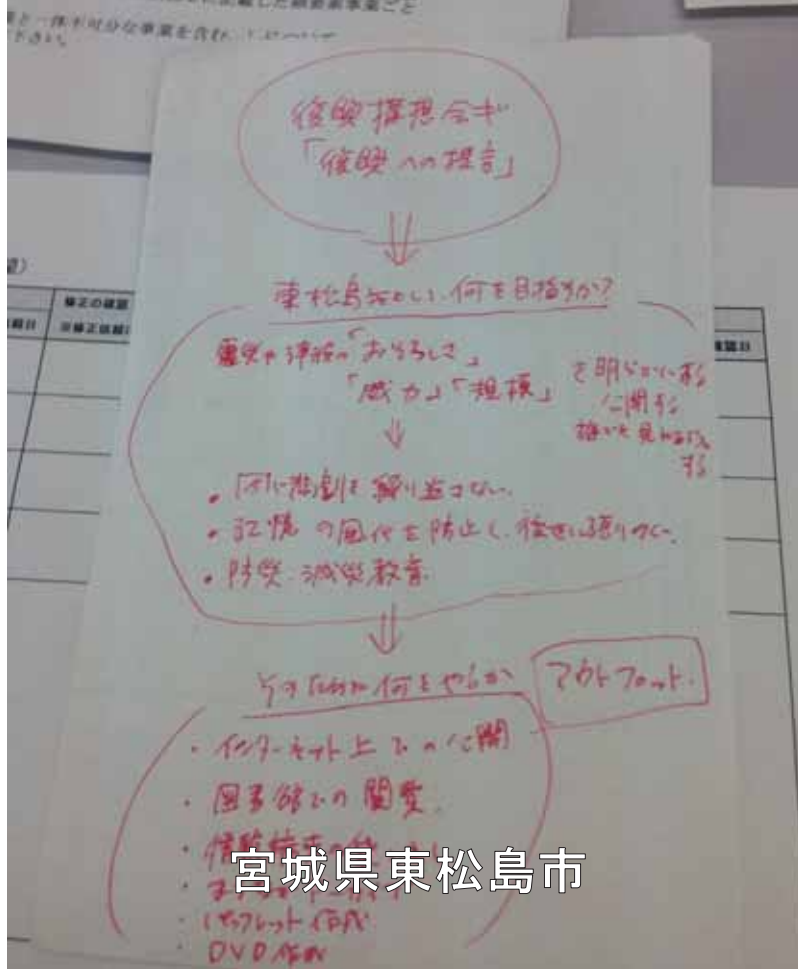 復興構想会議
「復興への提言」
東松島市として、何を目指すか?
震災や津波の「おそろしさ」
「威力」「規模」
を明らかにする
公開する
誰でも見れるように
する
・同じ悲劇を繰り返さない。
・記憶の風化を防止し、後世に語りつぐ。
・防災・減災教育
そのために何をやるか
アウトプット.
・インターネット上での公開
・図書館での閲覧.
・パンフレット作成
・DVD作成
宮城県東松島市
一体不可分な事業を含む
修正の確認